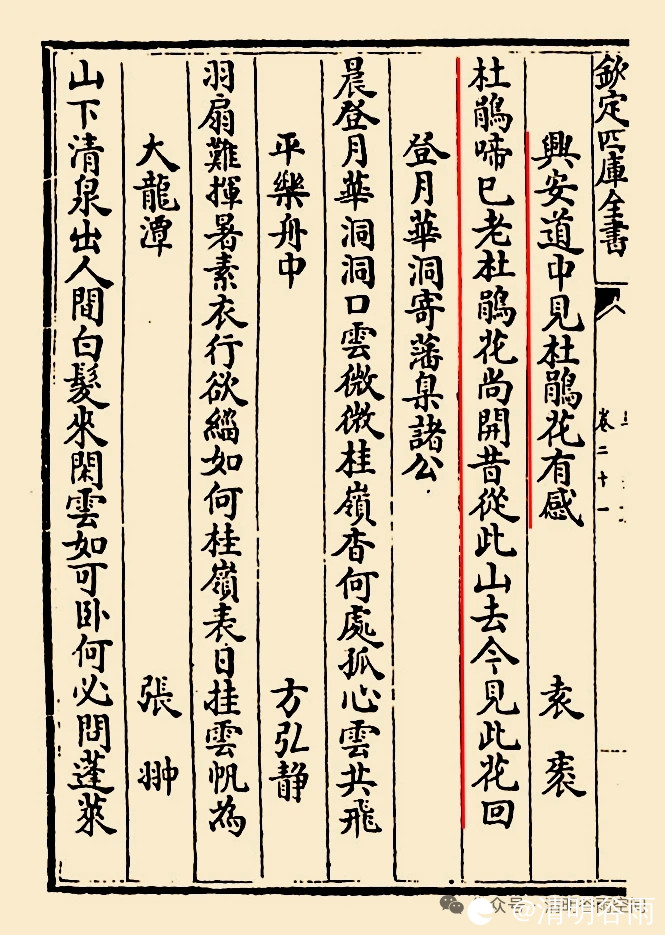 欽定四庫全書
卷二十一
興安道中見杜鵑花有感　袁袠
杜鵑啼已老杜鵑花尚開昔從此山去今見此花回
登月華洞寄藩臬諸公
晨登月華洞洞口雲微微桂嶺杳何處孤心雲共飛
平樂舟中　方弘静
羽扇難揮暑素衣行欲緇如何桂嶺表日挂雲帆為
大龍潭　張翀
山下清泉出人間白髮來閑雲如可卧何必問蓬萊
众号·清明谷雨空间
@清明谷雨